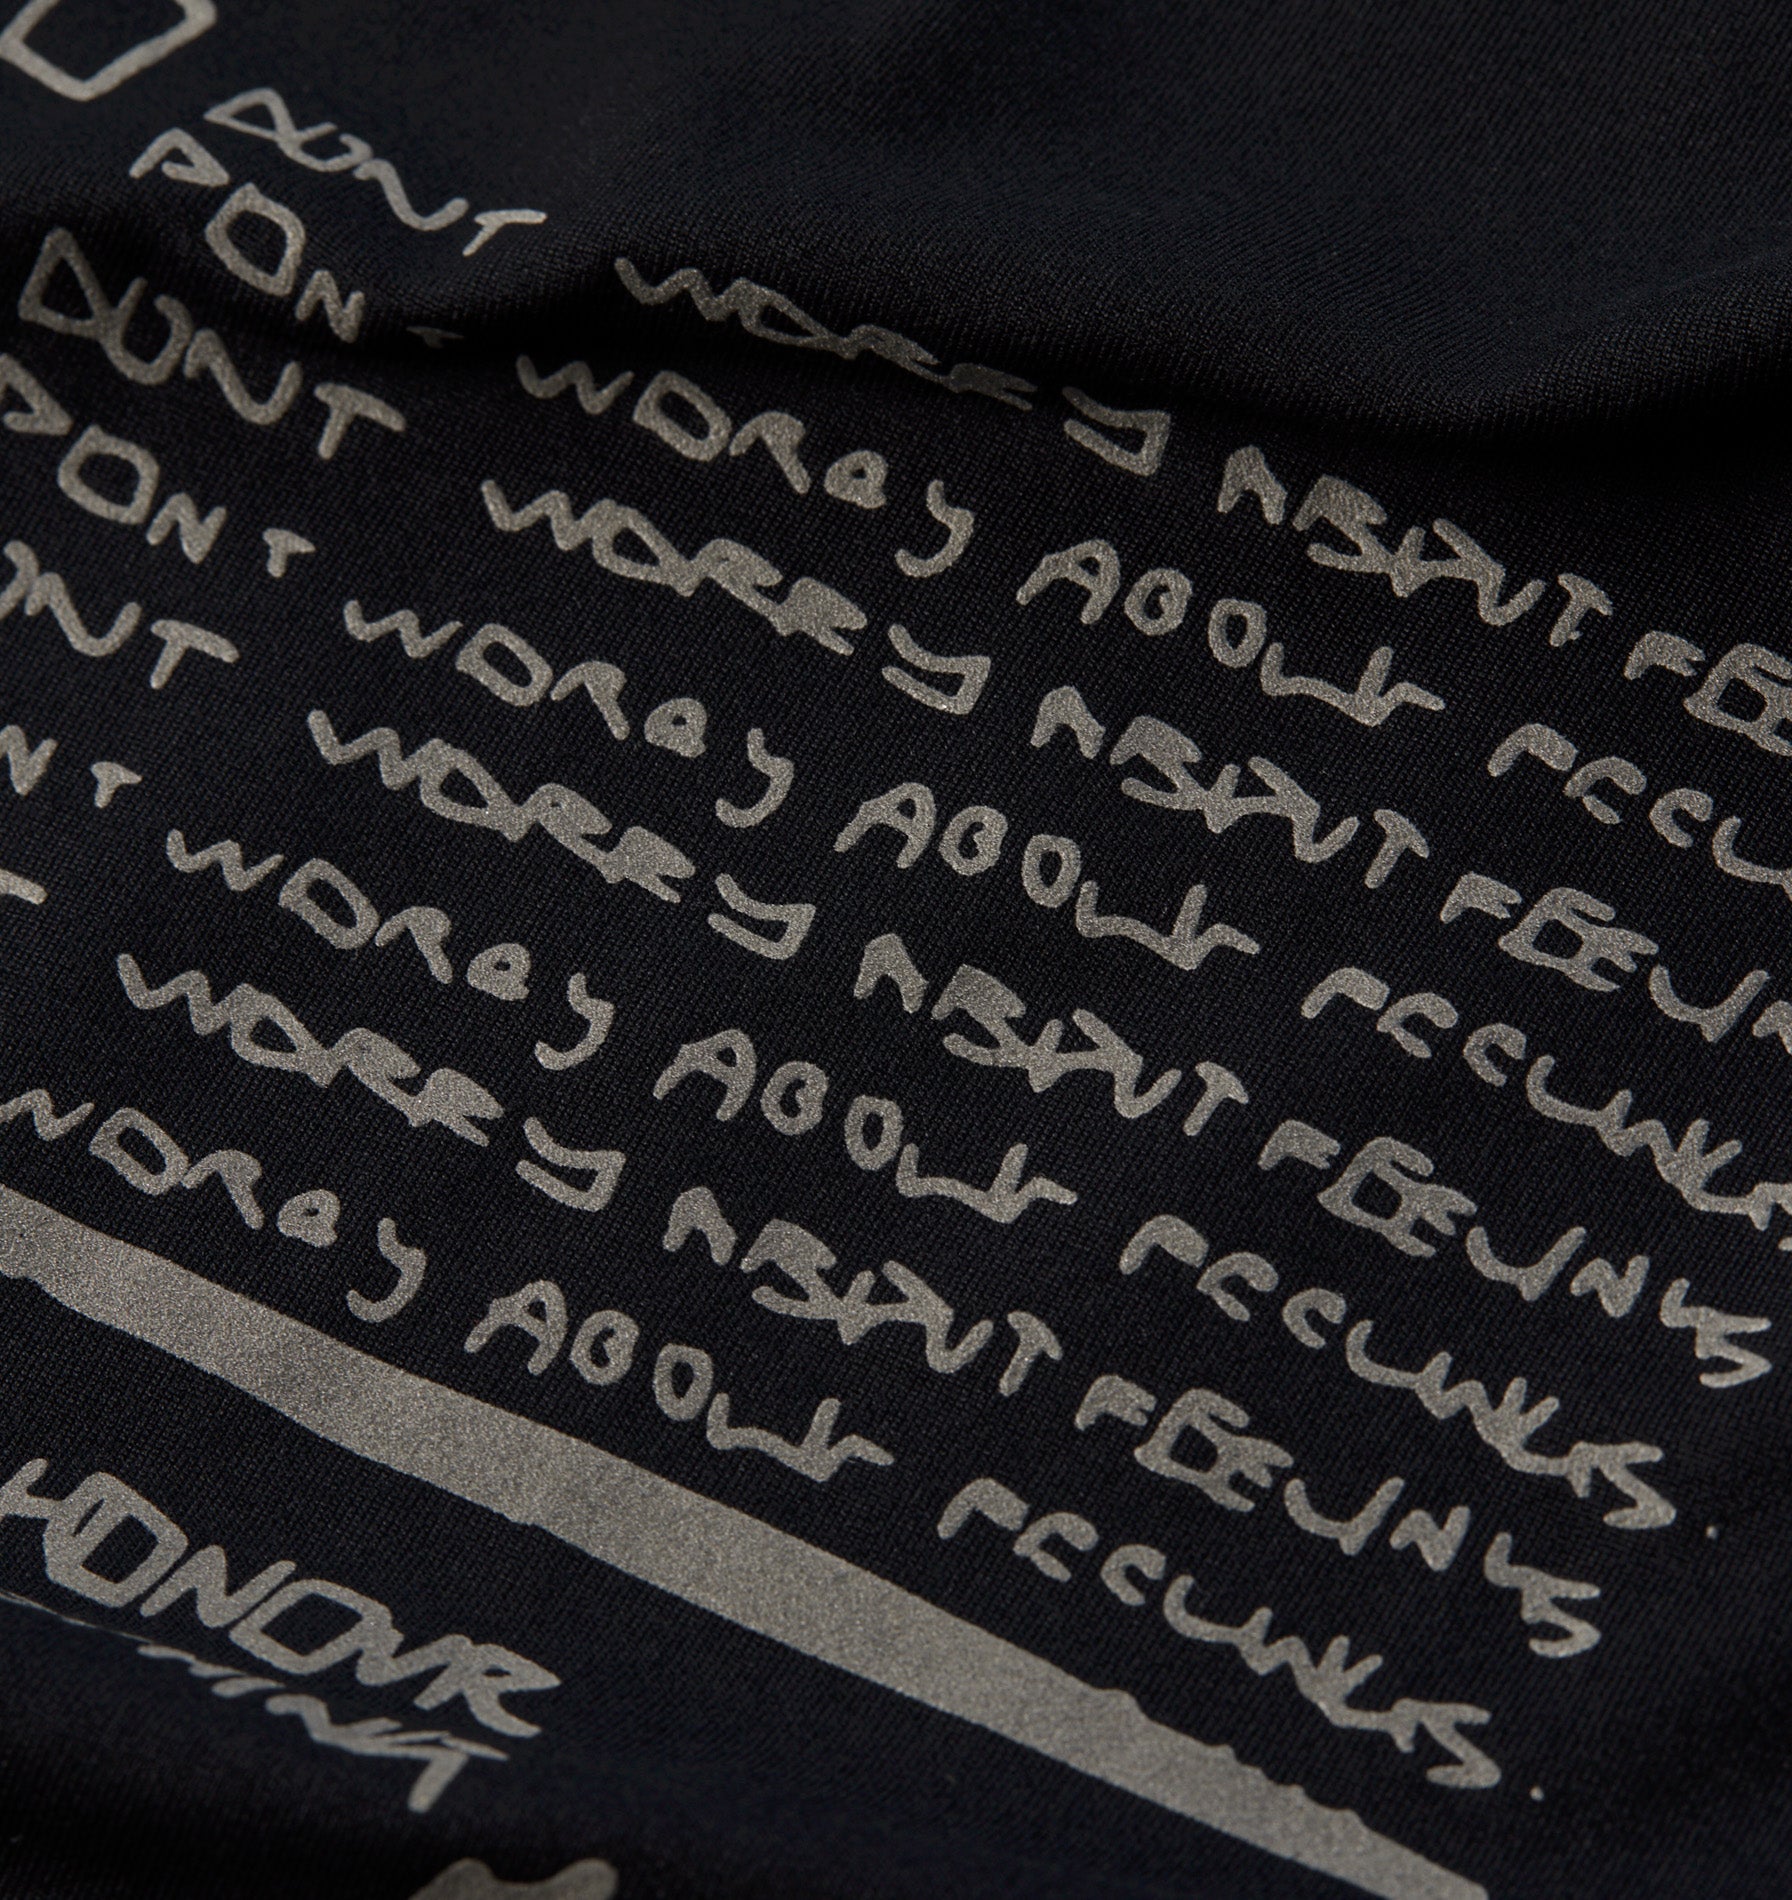 DONT WORRY ABOUT FEE
DON T WORRY ABOUT FEEL
DONT WORRY ABOUT FEEL
DON T WORRY ABOUT FEELING
ONT WORRY ABOUT FEELINGS
N T WORRY ABOUT FEELINGS.
T WORRY ABOUT FEELINGS
WORRY ABOUT FEELINGS.
HONOUR